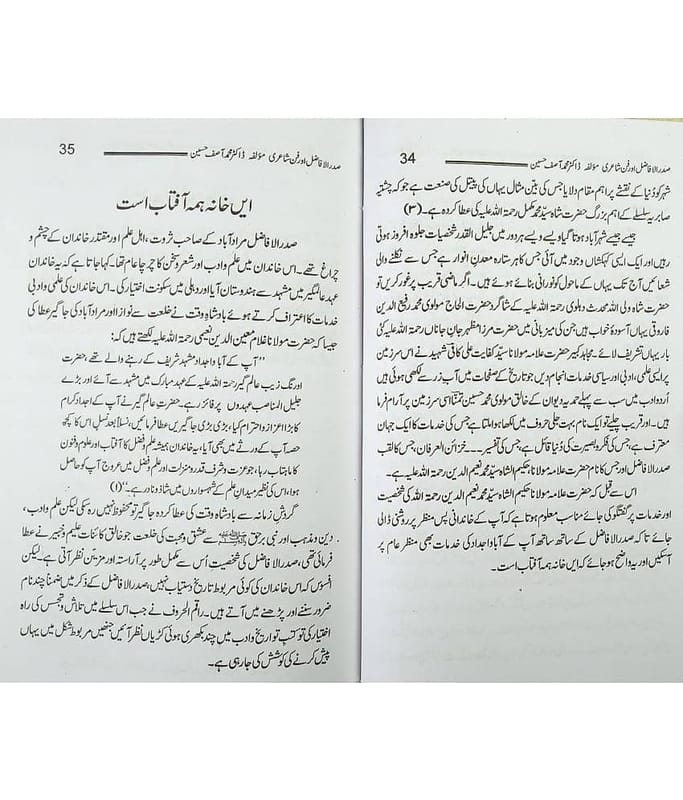 34 صدرالافاضل اور فن شاعری مؤلفہ ڈاکٹر محمد آصف حسین
شہر کو دُنیا کے نقشے پر اہم مقام دلایا جس کی بیّن مثال یہاں کی پیتل کی صنعت ہے جو کہ چشتیہ
صابریہ سلسلے کے اہم بزرگ حضرت شاہ سیّد محمد مکمل رحمۃ اللہ علیہ کی عطا کردہ ہے۔ (۳)
جیسے جیسے شہر آباد ہوتا گیا ویسے ویسے ہر دور میں جلیل القدر شخصیات جلوہ افروز ہوتی
رہیں اور ایک ایسی کہکشاں وجود میں آئی جس کا ہر ستارہ معدنِ انوار ہے جس سے نکلنے والی
شعائیں آج تک یہاں کے ماحول کو نورانی بنائے ہوئے ہیں۔ اگر ماضی قریب پر غور کریں تو
حضرت شاہ ولی اللہ محدث دہلوی رحمۃ اللہ علیہ کے شاگرد حضرت الحاج مولوی محمد رفیع الدین
فاروقی یہاں آسودۂ خواب ہیں جن کی میزبانی میں حضرت مرزا مظہر جانِ جاناں رحمۃ اللہ علیہ کئی
بار یہاں تشریف لائے۔ مجاہد کبیر حضرت علامہ مولانا سیّد کفایت علی کافی شہید نے اس سرزمین
پر ایسی علمی، ادبی اور سیاسی خدمات انجام دیں جو تاریخ کے صفحات میں آبِ زر سے لکھی ہوئی ہیں
اُردو ادب میں سب سے پہلے حمدیہ دیوان کے خالق مولوی محمد حسین تمنّا اسی سرزمین پر آرام فرما
ہیں۔ اور قریب چلیے تو ایک نام بہت جلی حروف میں لکھا ہوا ملتا ہے جس کی خدمات کا ایک جہان
معترف ہے، جس کی فکر و بصیرت کی دُنیا قائل ہے، جس کی تفسیر۔۔۔ خزائن العرفان، جس کا لقب
صدرالافاضل اور جس کا نام حضرت علامہ مولانا حکیم الشاہ سیّد محمد نعیم الدین رحمۃ اللہ علیہ ہے۔
اس سے قبل کہ حضرت علامہ مولانا، حکیم الشاہ سیّد محمد نعیم الدین رحمۃ اللہ علیہ کی شخصیت
اور خدمات پر گفتگو کی جائے مناسب معلوم ہوتا ہے کہ آپ کے خاندانی پس منظر پر روشنی ڈالی
جائے تا کہ صدرالافاضل کے ساتھ ساتھ آپ کے آباو اجداد کی خدمات بھی منظر عام پر
آسکیں اور یہ واضح ہو جائے کہ ایں خانہ ہمہ آفتاب است۔
35 صدرالافاضل اور فن شاعری مؤلفہ ڈاکٹر محمد آصف حسین
ایں خانہ ہمہ آفتاب است
صدرالافاضل مراد آباد کے صاحبِ ثروت، اہلِ علم اور مقتدر خاندان کے چشم و
چراغ تھے۔ اس خاندان میں علم و ادب اور شعر و سخن کا چرچا عام تھا۔ کہا جاتا ہے کہ یہ خاندان
عہد عالمگیر میں مشہد سے ہندوستان آیا اور دہلی میں سکونت اختیار کی۔ اس خاندان کی علمی و ادبی
خدمات کا اعتراف کرتے ہوئے بادشاہِ وقت نے خلعت سے نوازا اور مراد آباد کی جاگیر عطا کی
جیسا کہ حضرت مولانا غلام معین الدین نعیمی رحمۃ اللہ علیہ لکھتے ہیں کہ:
”آپ کے آباو اجداد مشہد شریف کے رہنے والے تھے، حضرت
اورنگ زیب عالم گیر رحمۃ اللہ علیہ کے عہد مبارک میں مشہد سے آئے اور بڑے
جلیل المناصب عہدوں پر فائز رہے۔ حضرت عالم گیر نے آپ کے اجداد کرام
کا بڑا اعزاز و احترام کیا، بڑی بڑی جاگیریں عطا فرمائیں، نسلاً بعد نسلٍ اس کا کچھ
حصہ آپ کے ورثے میں بھی آیا، یہ خاندان ہمیشہ علم و فضل کا آفتاب اور علوم و فنون
کا ماہتاب رہا، جو عزت و شرف، قدر و منزلت اور علم و فضل میں عروج آپ کو حاصل
ہوا، اس کی نظیر میدانِ علم کے شہسواروں میں شاذ و نادر ہے۔“ (۱)
گردشِ زمانہ سے بادشاہِ وقت کی عطا کردہ جاگیر تو محفوظ نہیں رہ سکی لیکن علم و ادب،
دین و مذہب اور نبی برحق ﷺ سے عشق و محبت کی خلعت جو خالقِ کائنات علیم و خبیر نے عطا
فرمائی تھی، صدرالافاضل کی شخصیت اُس سے مکمل طور پر آراستہ اور مزیّن نظر آتی ہے۔ لیکن
افسوس کہ اس خاندان کی کوئی مربوط تاریخ دستیاب نہیں، صدرالافاضل کے ذکر میں ضمناً چند نام
ضرور سننے اور پڑھنے میں آتے ہیں۔ راقم الحروف نے جب اس سلسلے میں تلاش و تجسس کی راہ
اختیار کی تو کتبِ تواریخ و ادب میں چند بکھری ہوئی کڑیاں نظر آئیں جنھیں مربوط شکل میں یہاں
پیش کرنے کی کوشش کی جا رہی ہے۔